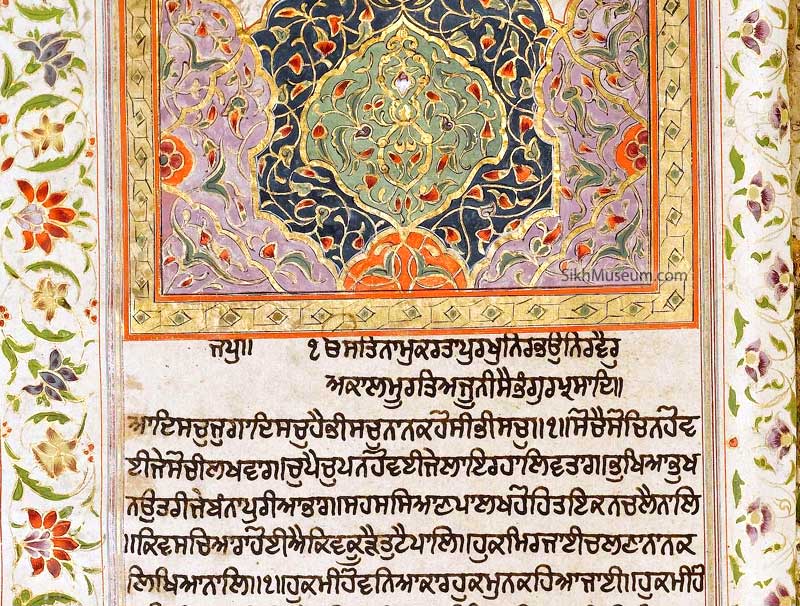 SikhMuseum.com
ਜਪੁ॥ ੴਸਤਿਨਾਮੁਕਰਤਾਪੁਰਖੁਨਿਰਭਉਨਿਰਵੈਰੁ
ਅਕਾਲਮੂਰਤਿਅਜੂਨੀਸੈਭੰਗੁਰਪ੍ਰਸਾਦਿ॥
ਆਦਿਸਚੁਜੁਗਾਦਿਸਚੁਹੈਭੀਸਚੁਨਾਨਕਹੋਸੀਭੀਸਚੁ॥੧॥ਸੋਚੈਸੋਚਿਨਹੋਵ
ਈਜੇਸੋਚੀਲਖਵਾਰ॥ਚੁਪੈਚੁਪਨਹੋਵਈਜੇਲਾਇਰਹਾਲਿਵਤਾਰ॥ਭੁਖਿਆਭੁਖ
ਨਉਤਰੀਜੇਬੰਨਾਪੁਰੀਆਭਾਰ॥ਸਹਸਸਿਆਣਪਾਲਖਹੋਹਿਤਇਕਨਚਲੈਨਾਲਿ
॥ਕਿਵਸਚਿਆਰਾਹੋਈਐਕਿਵਕੂੜੈਤੁਟੈਪਾਲਿ॥ਹੁਕਮਿਰਜਾਈਚਲਣਾਨਾਨਕ
ਲਿਖਿਆਨਾਲਿ॥੧॥ਹੁਕਮੀਹੋਵਨਿਆਕਾਰਹੁਕਮੁਨਕਹਿਆਜਾਈ॥ਹੁਕਮੀਹੋ